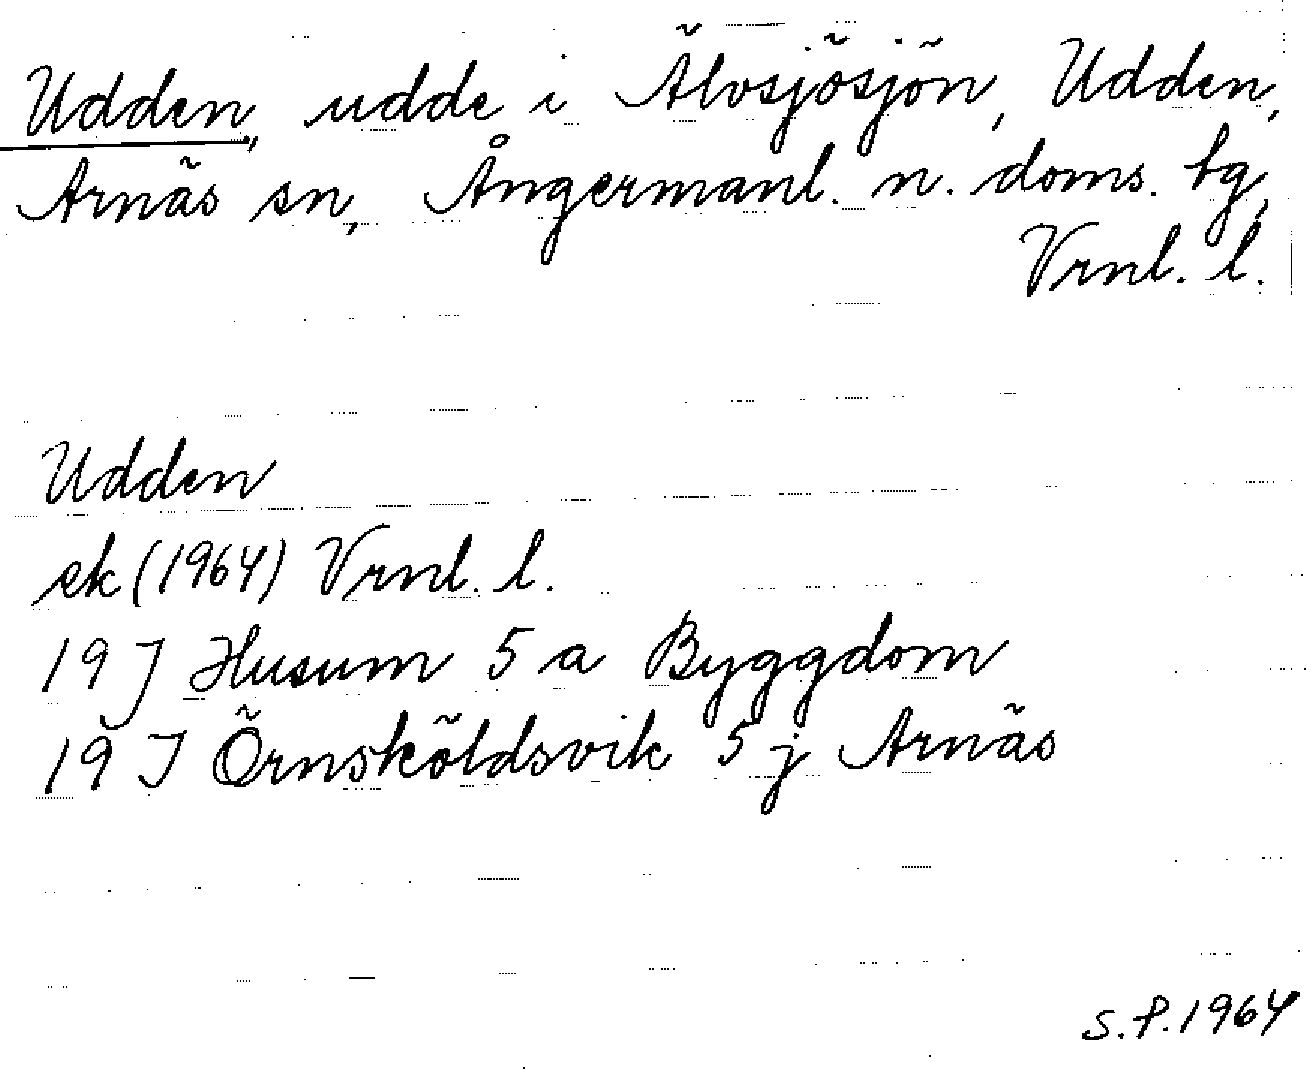 Udden, udde i Älvsjösjön, Udden,
Arnäs sn, Ångermanl. n. doms. tg,
Vrnl. l.
Udden
ek (1964) Vrnl. l.
19 J Husum 5 a Byggdom
19 I Örnsköldsvik 5 j Arnäs
S.P. 1964